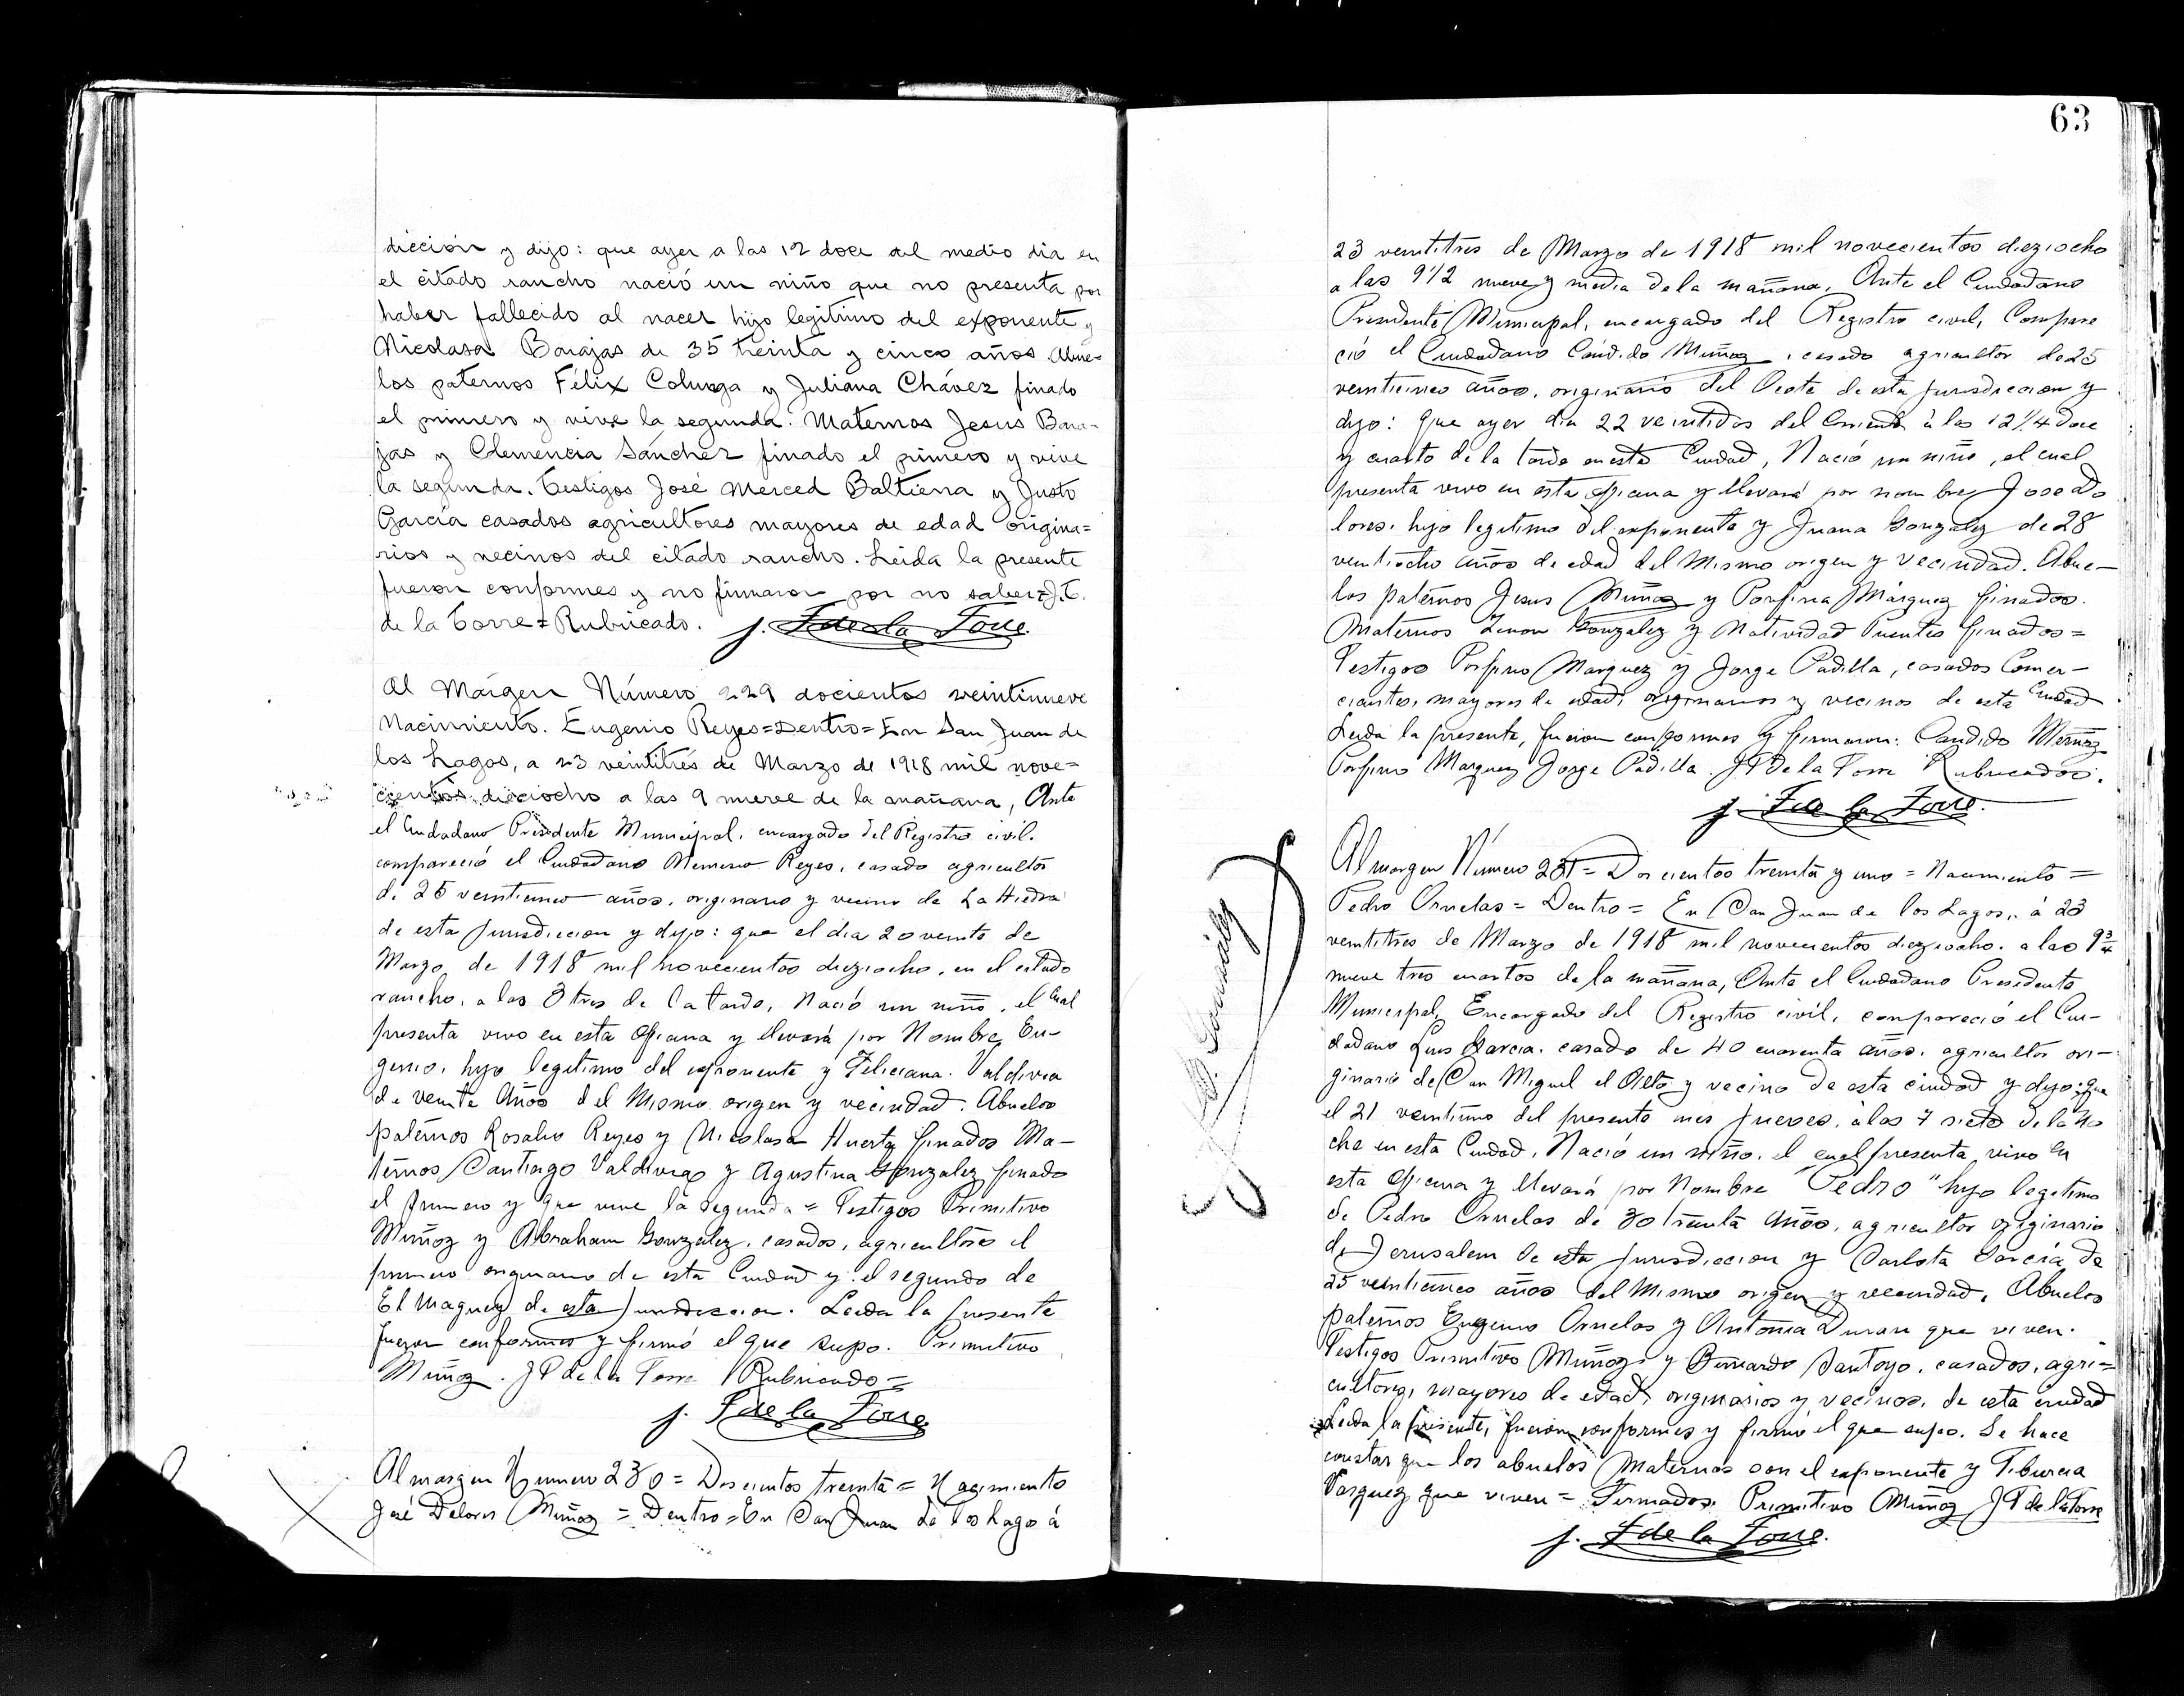 dicción y dijo: que ayer a las 12 doce del medio dia en
el citado rancho nació un niño que no presenta por
haber fallecido al nacer hijo legítimo del exponente y
Nicolasa Barajas de 35 treinta y cinco años. Abue-
los paternos Félix Colunga y Juliana Chávez finado
el primero y vive la segunda. Maternos Jesus Bara-
jas y Clemencia Sánchez finado el primero y vive
la segunda. Testigos José Merced Baltierra y Justo
García casados agricultores mayores de edad origina=
rios y vecinos del citado rancho. Leida la presente
fueron conformes y no firmaron por no saber=J.T.
de la Torre=Rubricado. J. T de la Torre.
Al Márgen Número 229 docientos veintinueve
Nacimiento. Eugenio Reyes=Dentro=En San Juan de
los Lagos, a 23 veintitrés de Marzo de 1918 mil nove=
cientos dieciocho a las 9 nueve de la mañana, Ante
el Ciudadano Presidente Municipal, encargado del Registro civil.
compareció el Ciudadano Reyes, casado agricultor
de 25 veinticinco años, originario y vecino de La Hiedra
de esta Jurisdiccion y dijo: que el dia 20 veinte de
Marzo de 1918 mil novecientos dieziocho, en el citado
rancho, a las 3 tres de la tarde, Nació un niño, el Cual
presenta vivo en esta oficina y llevará por Nombre, Eu-
genio, hijo legitimo del exponente y Feliciana Valdivia
de veinte Años del Mismo origen y vecindad. Abuelos
paternos Rosalio Reyes y Nicolasa Huerta finados Ma-
ternos Santiago Valdivia y Agustina Gonzalez finado
el primero y que vive la segunda = Testigos Primitivo
Muñoz y Abraham Gonzalez, casados, agricultores el
primero originario de esta Ciudad y el segundo de
El Maguey de esta Jurisdiccion. Leida la presente
fueron conformes y firmó el que supo. Primitivo
Muñoz. J T de la Torre Rubricado=
J. T de la Torre
Al margen Número 230 = Doscientos treinta = Nacimiento
José Dolores Muñoz = Dentro = En San Juan de los Lagos á
63
23 veintitres de Marzo de 1918 mil novecientos dieziocho
a las 9 1/2 nueve y media de la mañana, Ante el Ciudadano
Presidente Municipal, encargado del Registro civil, Compare
ció el Ciudadano Cándido Muñoz, casado agricultor de 25
veinticinco años, originario del Ocote de esta jurisdiccion y
dijo: que ayer dia 22 veintidos del Corriente á las 12 1/4 doce
y cuarto de la tarde en esta Ciudad, Nació un niño, el cual
presenta vivo en esta oficina y llevará por nombre, Jose Do
lores, hijo legitimo del exponente y Juana Gonzalez de 28
veintiocho años de edad del Mismo origen y vecindad. Abue-
los paternos Jesus Muñoz y Porfiria Márquez finados.
Maternos Zenon Gonzalez y Natividad Puentes finados=
Testigos Porfirio Marquez y Jorge Padilla, casados Comer-
ciantes, mayores de edad, originarios y vecinos de esta Ciudad
Leida la presente, fueron conformes y firmaron: Candido Muñoz
Porfirio Marquez Jorge Padilla. J T de la Torre Rubricados.
J. T de la Torre.
Al margen Número 231 = Doscientos treinta y uno = Nacimiento =
Pedro Ornelas = Dentro = En San Juan de los Lagos, á 23
veintitres de Marzo de 1918 mil novecientos dieziocho. a las 9 3/4
nueve tres cuartos de la mañana, Ante el Ciudadano Presidente
Municipal, Encargado del Registro civil, compareció el Ciu-
dadano Luis Garcia, casado de 40 cuarenta años, agricultor ori-
ginario de San Miguel el Alto y vecino de esta ciudad y dijo: que
el 21 veintiuno del presente mes jueves, á las 7 siete de la no
che en esta Ciudad, Nació un niño, el cual presenta vivo en
esta oficina y llevará por Nombre "Pedro" hijo legitimo
de Pedro Ornelas de 30 treinta Años, agricultor originario
de Jerusalem de esta jurisdiccion y Carlota García de
25 veinticinco años del Mismo origen y vecindad, Abuelos
paternos Eugenio Ornelas y Antonia Duran que viven.
Testigos Primitivo Muñoz y Bernardo Santoyo, casados, agri=
cultores, mayores de edad, originarios y vecinos, de esta ciudad
Leida la presente, fueron conformes y firmó el que supo. Se hace
constar que los abuelos Maternos son el exponente y Tiburcia
Vasquez que viven = Firmados, Primitivo Muñoz J T de la Torre
J. T de la Torre.